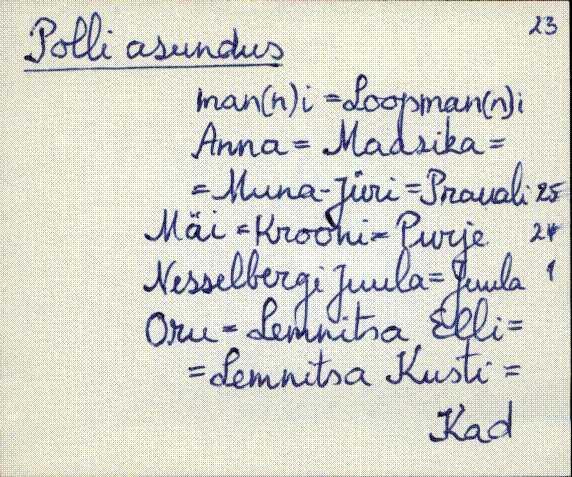 23
Polli asundus
man(n)i = Loopman(n)i
Anna = Madsika =
= Muna-Jüri = Pravali 25
Mäi = Krooni = Purje 24
Nesselbergi Juula = Juula 1
Oru = Lemnitsa Elli =
= Lemnitsa Kusti =
Kad